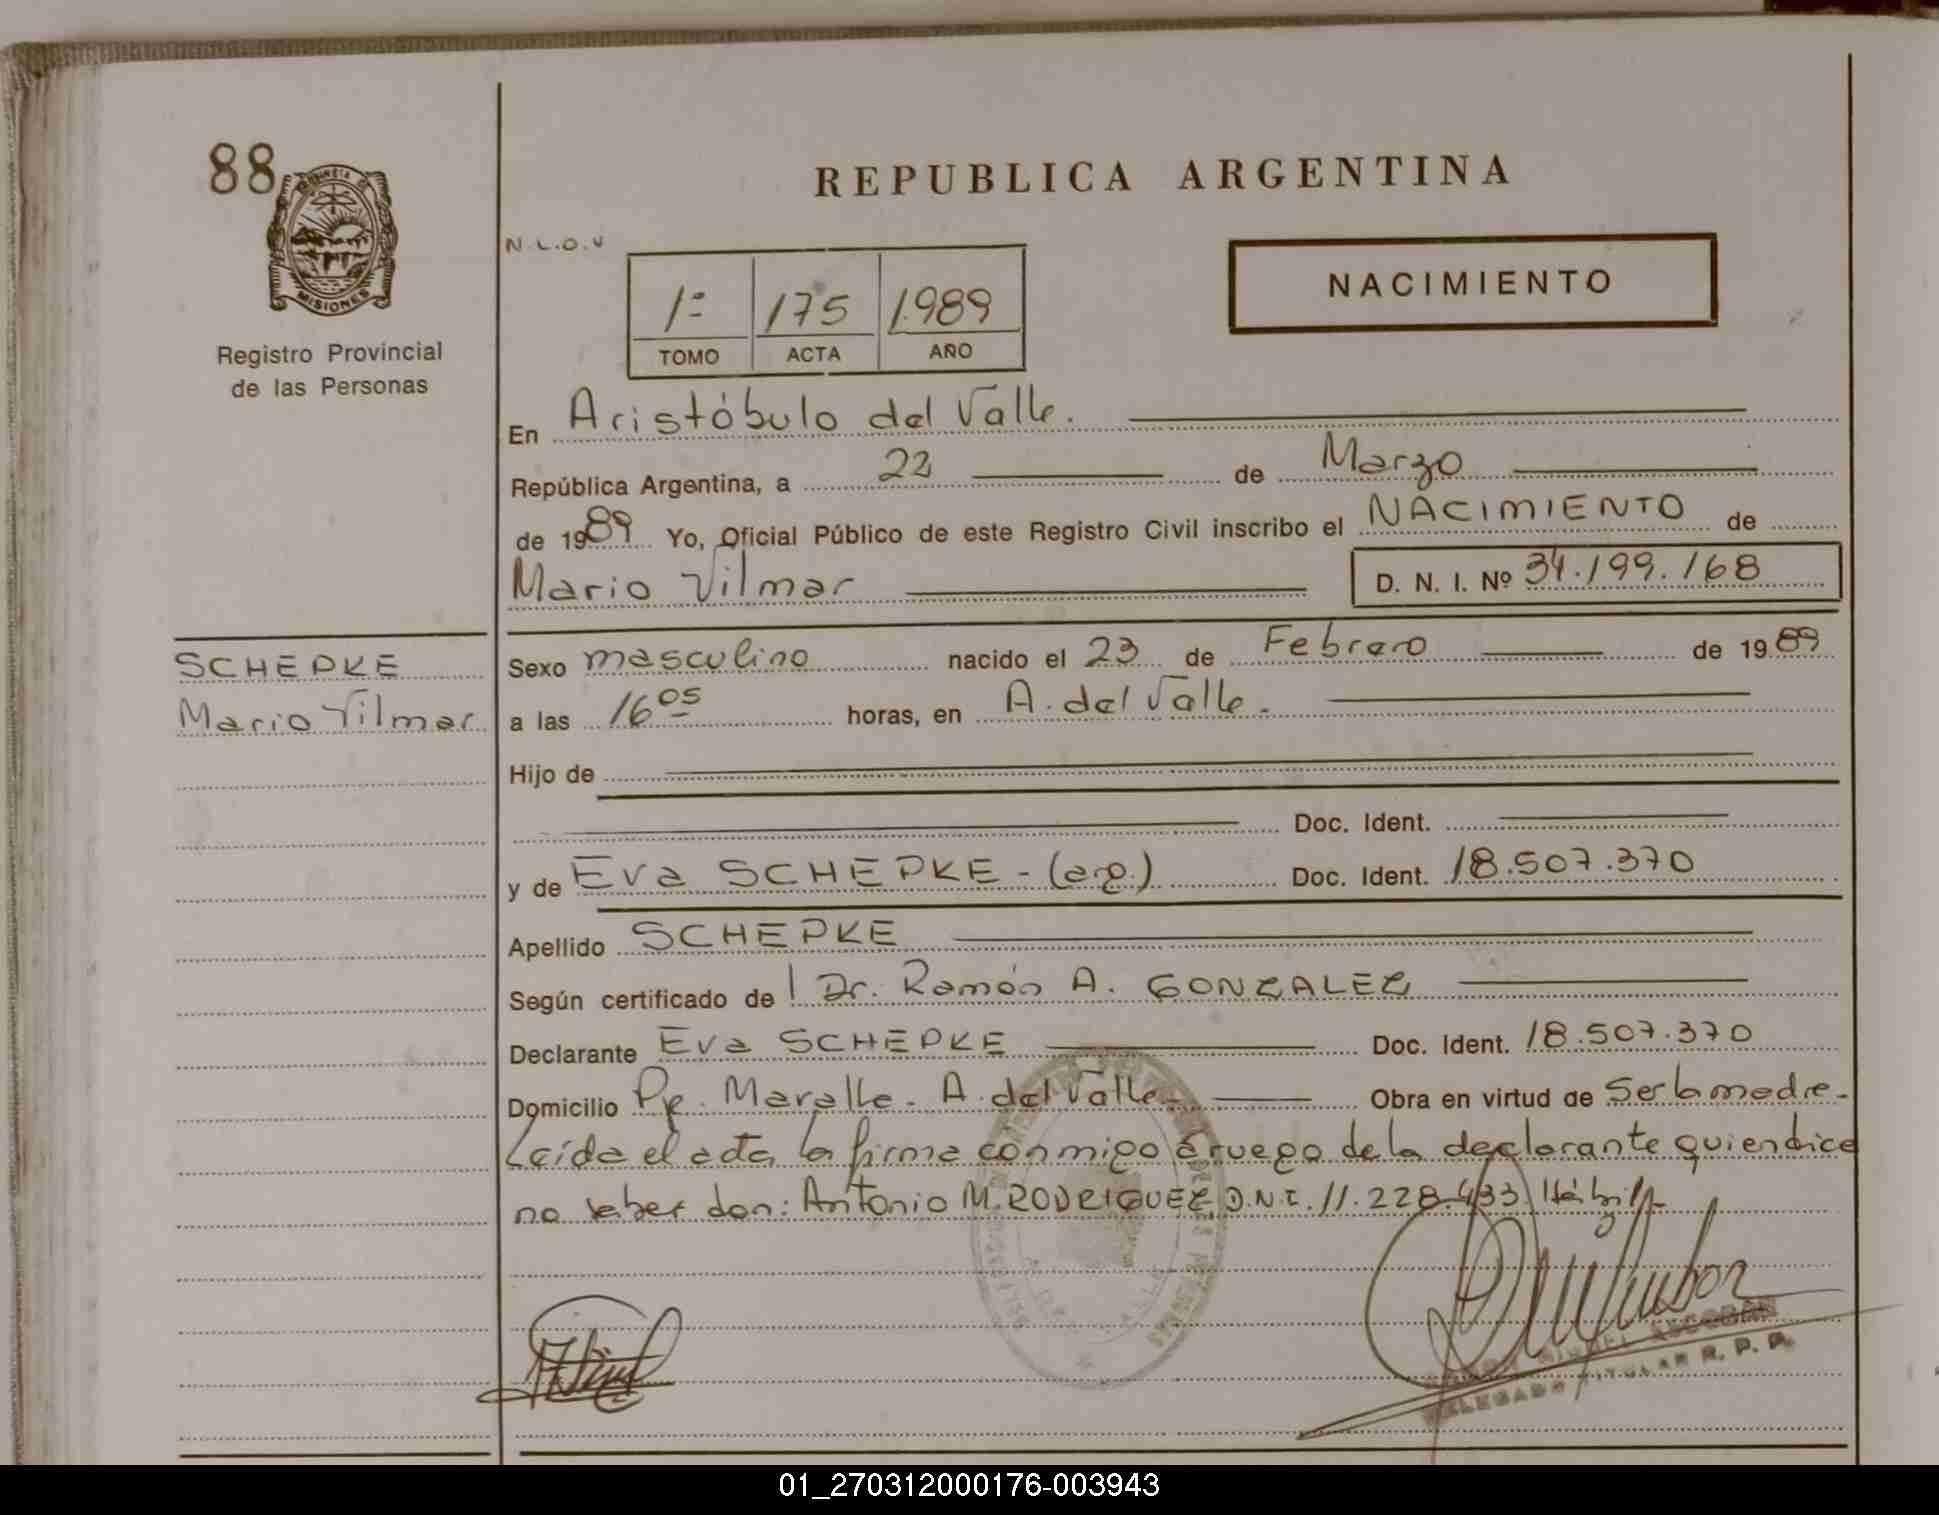 88
MISIONES
Registro Provincial
de las Personas
REPUBLICA ARGENTINA
N.L.O.V
1º 175 1989
TOMO ACTA AÑO
NACIMIENTO
En Aristóbulo del Valle.
República Argentina, a 22 de Marzo
de 1989 Yo, Oficial Público de este Registro Civil inscribo el NACIMIENTO de
Mario Vilmar D. N. I. Nº 34.199.168
SCHEPKE
Mario Vilmar
Sexo masculino nacido el 23 de Febrero de 1989
a las 16 05 horas, en A. del Valle.
Hijo de
Doc. Ident.
y de Eva SCHEPKE - (arg.) Doc. Ident. 18.507.370
Apellido SCHEPKE
Según certificado de Dr. Ramón A. GONZALEZ
Declarante Eva SCHEPKE Doc. Ident. 18.507.370
Domicilio A. del Valle - Obra en virtud de Ser la madre -
Leída el acta, la firma conmigo a ruego de la declarante quien dice
no saber don: Antonio M. RODRIGUEZ D.N.I. 11.228.433. Hábil
DELEGADO TITULAR R. P. P.
01_270312000176-003943